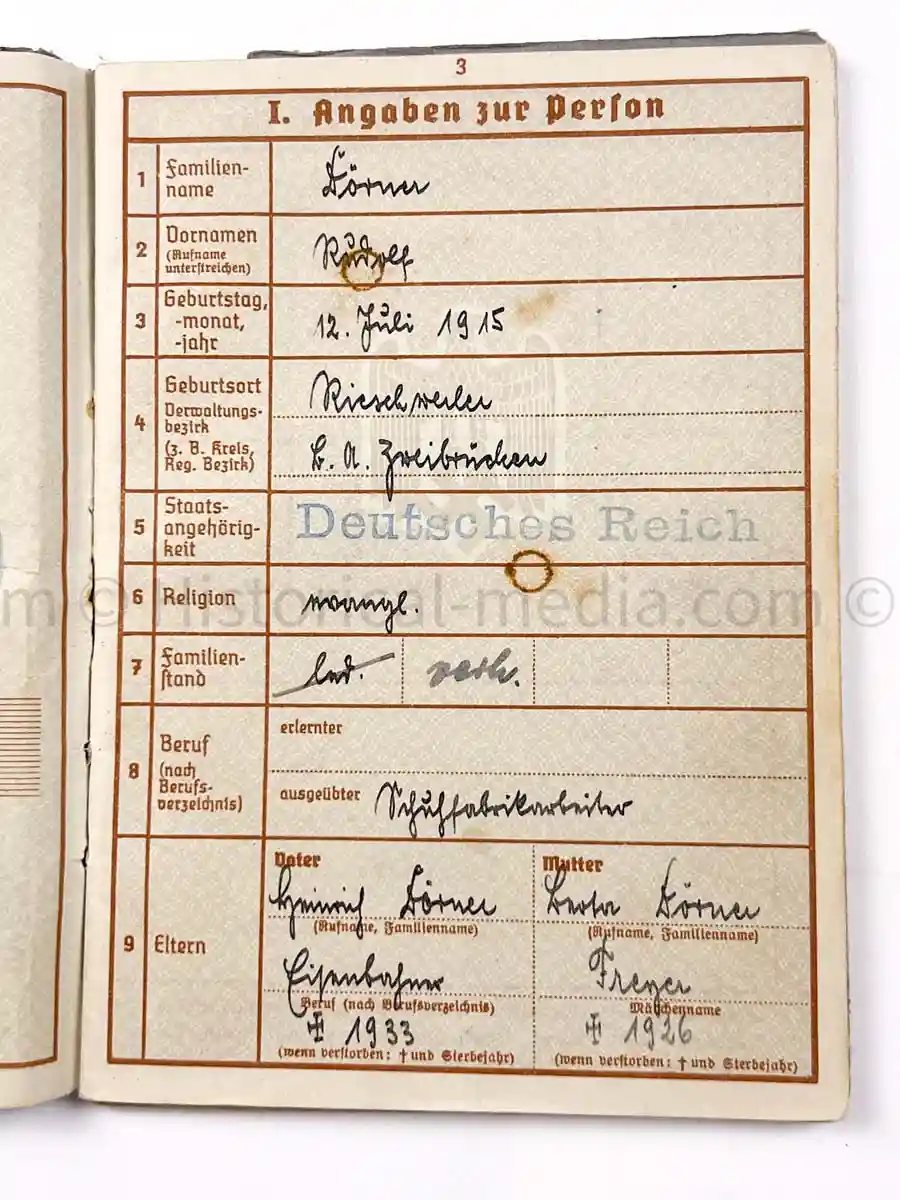 3
I. Angaben zur Person
1 Familien-
name
Dörner
2 Vornamen
(Rufname
unterstreichen)
Rudolf
3 Geburtstag,
-monat,
-jahr
12. Juli 1915
4 Geburtsort
Verwaltungs-
bezirk
(z. B. Kreis,
Reg. Bezirk)
Rieschweiler
B. A. Zweibrücken
5 Staats-
angehörig-
keit
Deutsches Reich
m © Historical-media.com ©
6 Religion
evangl.
7 Familien-
stand
led. verh.
8 Beruf
(nach
Berufs-
verzeichnis)
erlernter
ausgeübter Schuhfabrikarbeiter
9 Eltern
Vater
Heinrich Dörner
(Rufname, Familienname)
Eisenbahner
Beruf (nach Berufsverzeichnis)
† 1933
(wenn verstorben: † und Sterbejahr)
Mutter
Berta Dörner
(Rufname, Familienname)
Freyer
Mädchenname
† 1926
(wenn verstorben: † und Sterbejahr)